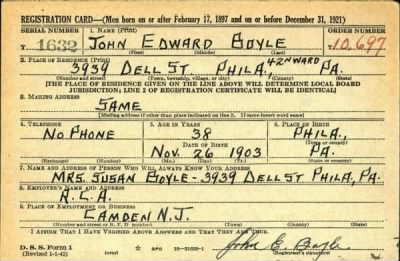 REGISTRATION CARD—(Men born on or after February 17, 1897 and on or before December 31, 1921)
SERIAL NUMBER 1. NAME (Print) ORDER NUMBER
T 1632 JOHN EDWARD BOYLE 10,697
(First) (Middle) (Last)
2. PLACE OF RESIDENCE (Print)
3939 DELL ST PHILA. 42ND WARD PA.
(Number and street) (Town, township, village, or city) (County) (State)
[THE PLACE OF RESIDENCE GIVEN ON THE LINE ABOVE WILL DETERMINE LOCAL BOARD
JURISDICTION; LINE 2 OF REGISTRATION CERTIFICATE WILL BE IDENTICAL]
3. MAILING ADDRESS
SAME
[Mailing address if other than place indicated on line 2. If same insert word same]
4. TELEPHONE 5. AGE IN YEARS 6. PLACE OF BIRTH
NO PHONE 38 PHILA.,
DATE OF BIRTH (Town or county)
NOV. 26 1903 PA.
(Exchange) (Number) (Mo.) (Day) (Yr.) (State or country)
7. NAME AND ADDRESS OF PERSON WHO WILL ALWAYS KNOW YOUR ADDRESS
MRS. SUSAN BOYLE - 3939 DELL ST PHILA, PA.
8. EMPLOYER'S NAME AND ADDRESS
R.C.A.
9. PLACE OF EMPLOYMENT OR BUSINESS
CAMDEN N.J.
(Number and street or R. F. D. number) (Town) (County) (State)
I AFFIRM THAT I HAVE VERIFIED ABOVE ANSWERS AND THAT THEY ARE TRUE.
D. S. S. Form 1
(Revised 1-1-42) (over) GPO John E. Boyle
(Registrant's signature)